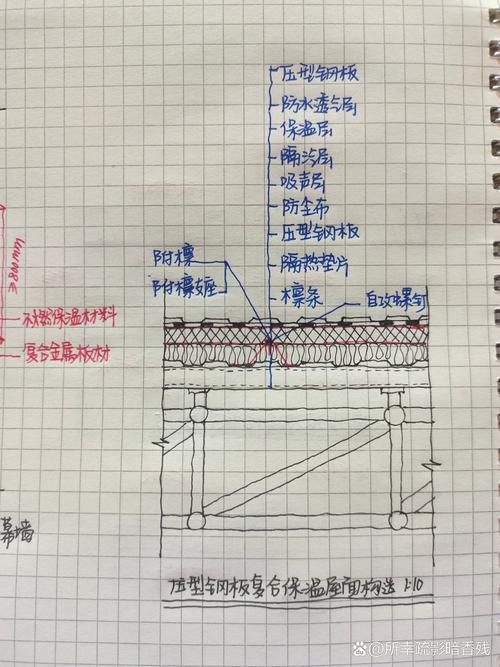 压型钢板
防水透气层
保温层
隔汽层
吸声层
防尘布
压型钢板
隔热垫片
檩条
附檩
附檩托座
自攻螺钉
≥800mm
不燃保温材料
复合金属板材
幕墙
压型钢板复合保温屋面构造 1:10
@所幸疏影暗香残